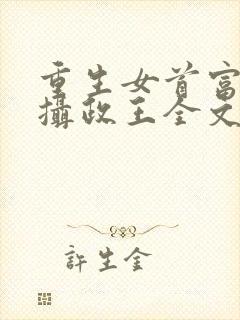 重生女首富
攝政王全文
許生金